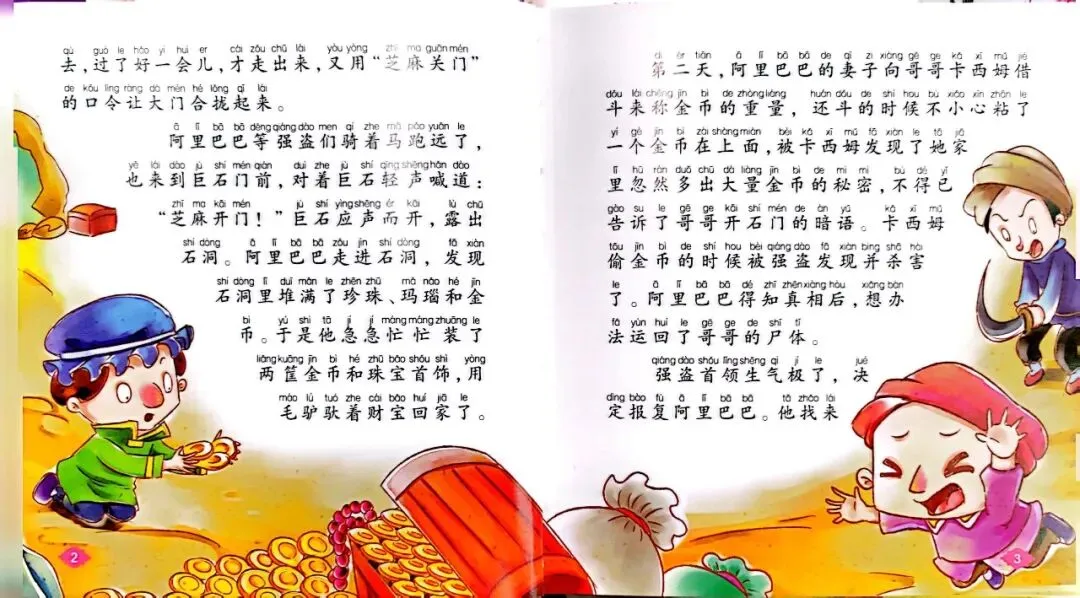 qù guò le hǎo yí huì er cái zǒu chū lái yòu yòng zhī ma guān mén
去，过了好一会儿，才走出来，又用“芝麻关门”
de kǒu lìng ràng dà mén hé lǒng qǐ lái
的口令让大门合拢起来。
ā lǐ bā bā děng qiáng dào men qí zhe mǎ pǎo yuǎn le
阿里巴巴等强盗们骑着马跑远了，
yě lái dào jù shí mén qián duì zhe jù shí qīng shēng hǎn dào
也来到巨石门前，对着巨石轻声喊道：
zhī ma kāi mén jù shí yìng shēng ér kāi lù chū
“芝麻开门！”巨石应声而开，露出
shí dòng ā lǐ bā bā zǒu jìn shí dòng fā xiàn
石洞。阿里巴巴走进石洞，发现
shí dòng lǐ duī mǎn le zhēn zhū mǎ nǎo hé jīn
石洞里堆满了珍珠、玛瑙和金
bì yú shì tā jí jí máng máng zhuāng le
币。于是他急急忙忙 装了
liǎng kuāng jīn bì hé zhū bǎo shǒu shì yòng
两筐金币和珠宝首饰，用
máo lǘ tuó zhe cái bǎo huí jiā le
毛驴驮着财宝回家了。
2
dì èr tiān ā lǐ bā bā de qī zi xiàng gē ge kǎ xī mǔ jiè
第二天，阿里巴巴的妻子向哥哥卡西姆借
dǒu lái chēng jīn bì de zhòng liàng huán dǒu de shí hou bù xiǎo xīn zhān le
斗来称金币的重量，还斗的时候不小心粘了
yí gè jīn bì zài shàng miàn bèi kǎ xī mǔ fā xiàn le tā jiā
一个金币在上面，被卡西姆发现了她家
lǐ hū rán duō chū dà liàng jīn bì de mì mì bù dé yǐ
里忽然多出大量金币的秘密，不得已
gào su le gē ge kāi shí mén de àn yǔ kǎ xī mǔ
告诉了哥哥开石门的暗语。卡西姆
tōu jīn bì de shí hou bèi qiáng dào fā xiàn bìng shā hài
偷金币的时候被强盗发现并杀害
le ā lǐ bā bā dé zhī zhēn xiàng hòu xiǎng bàn
了。阿里巴巴得知真相后，想办
fǎ yùn huí le gē ge de shī tǐ
法运回了哥哥的尸体。
qiáng dào shǒu lǐng shēng qì jí le jué
强盗首领生气极了，决
dìng bào fù ā lǐ bā bā tā zhǎo lái
定报复阿里巴巴。他找来
3